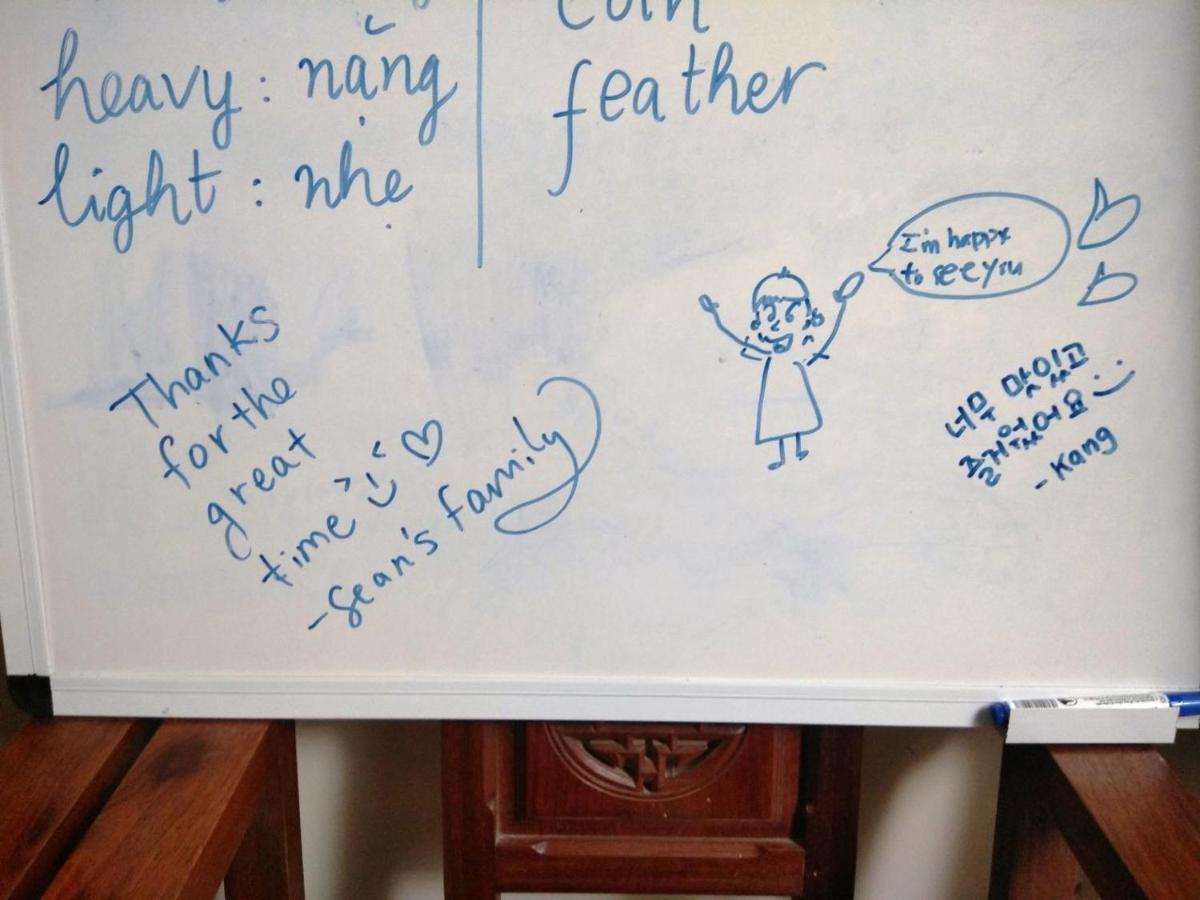 heavy : nặng
light : nhẹ
feather
I'm happy
to see you
Thanks
for the
great
time
-Sean's family
너무 맛있고
즐거웠어요
-Kang